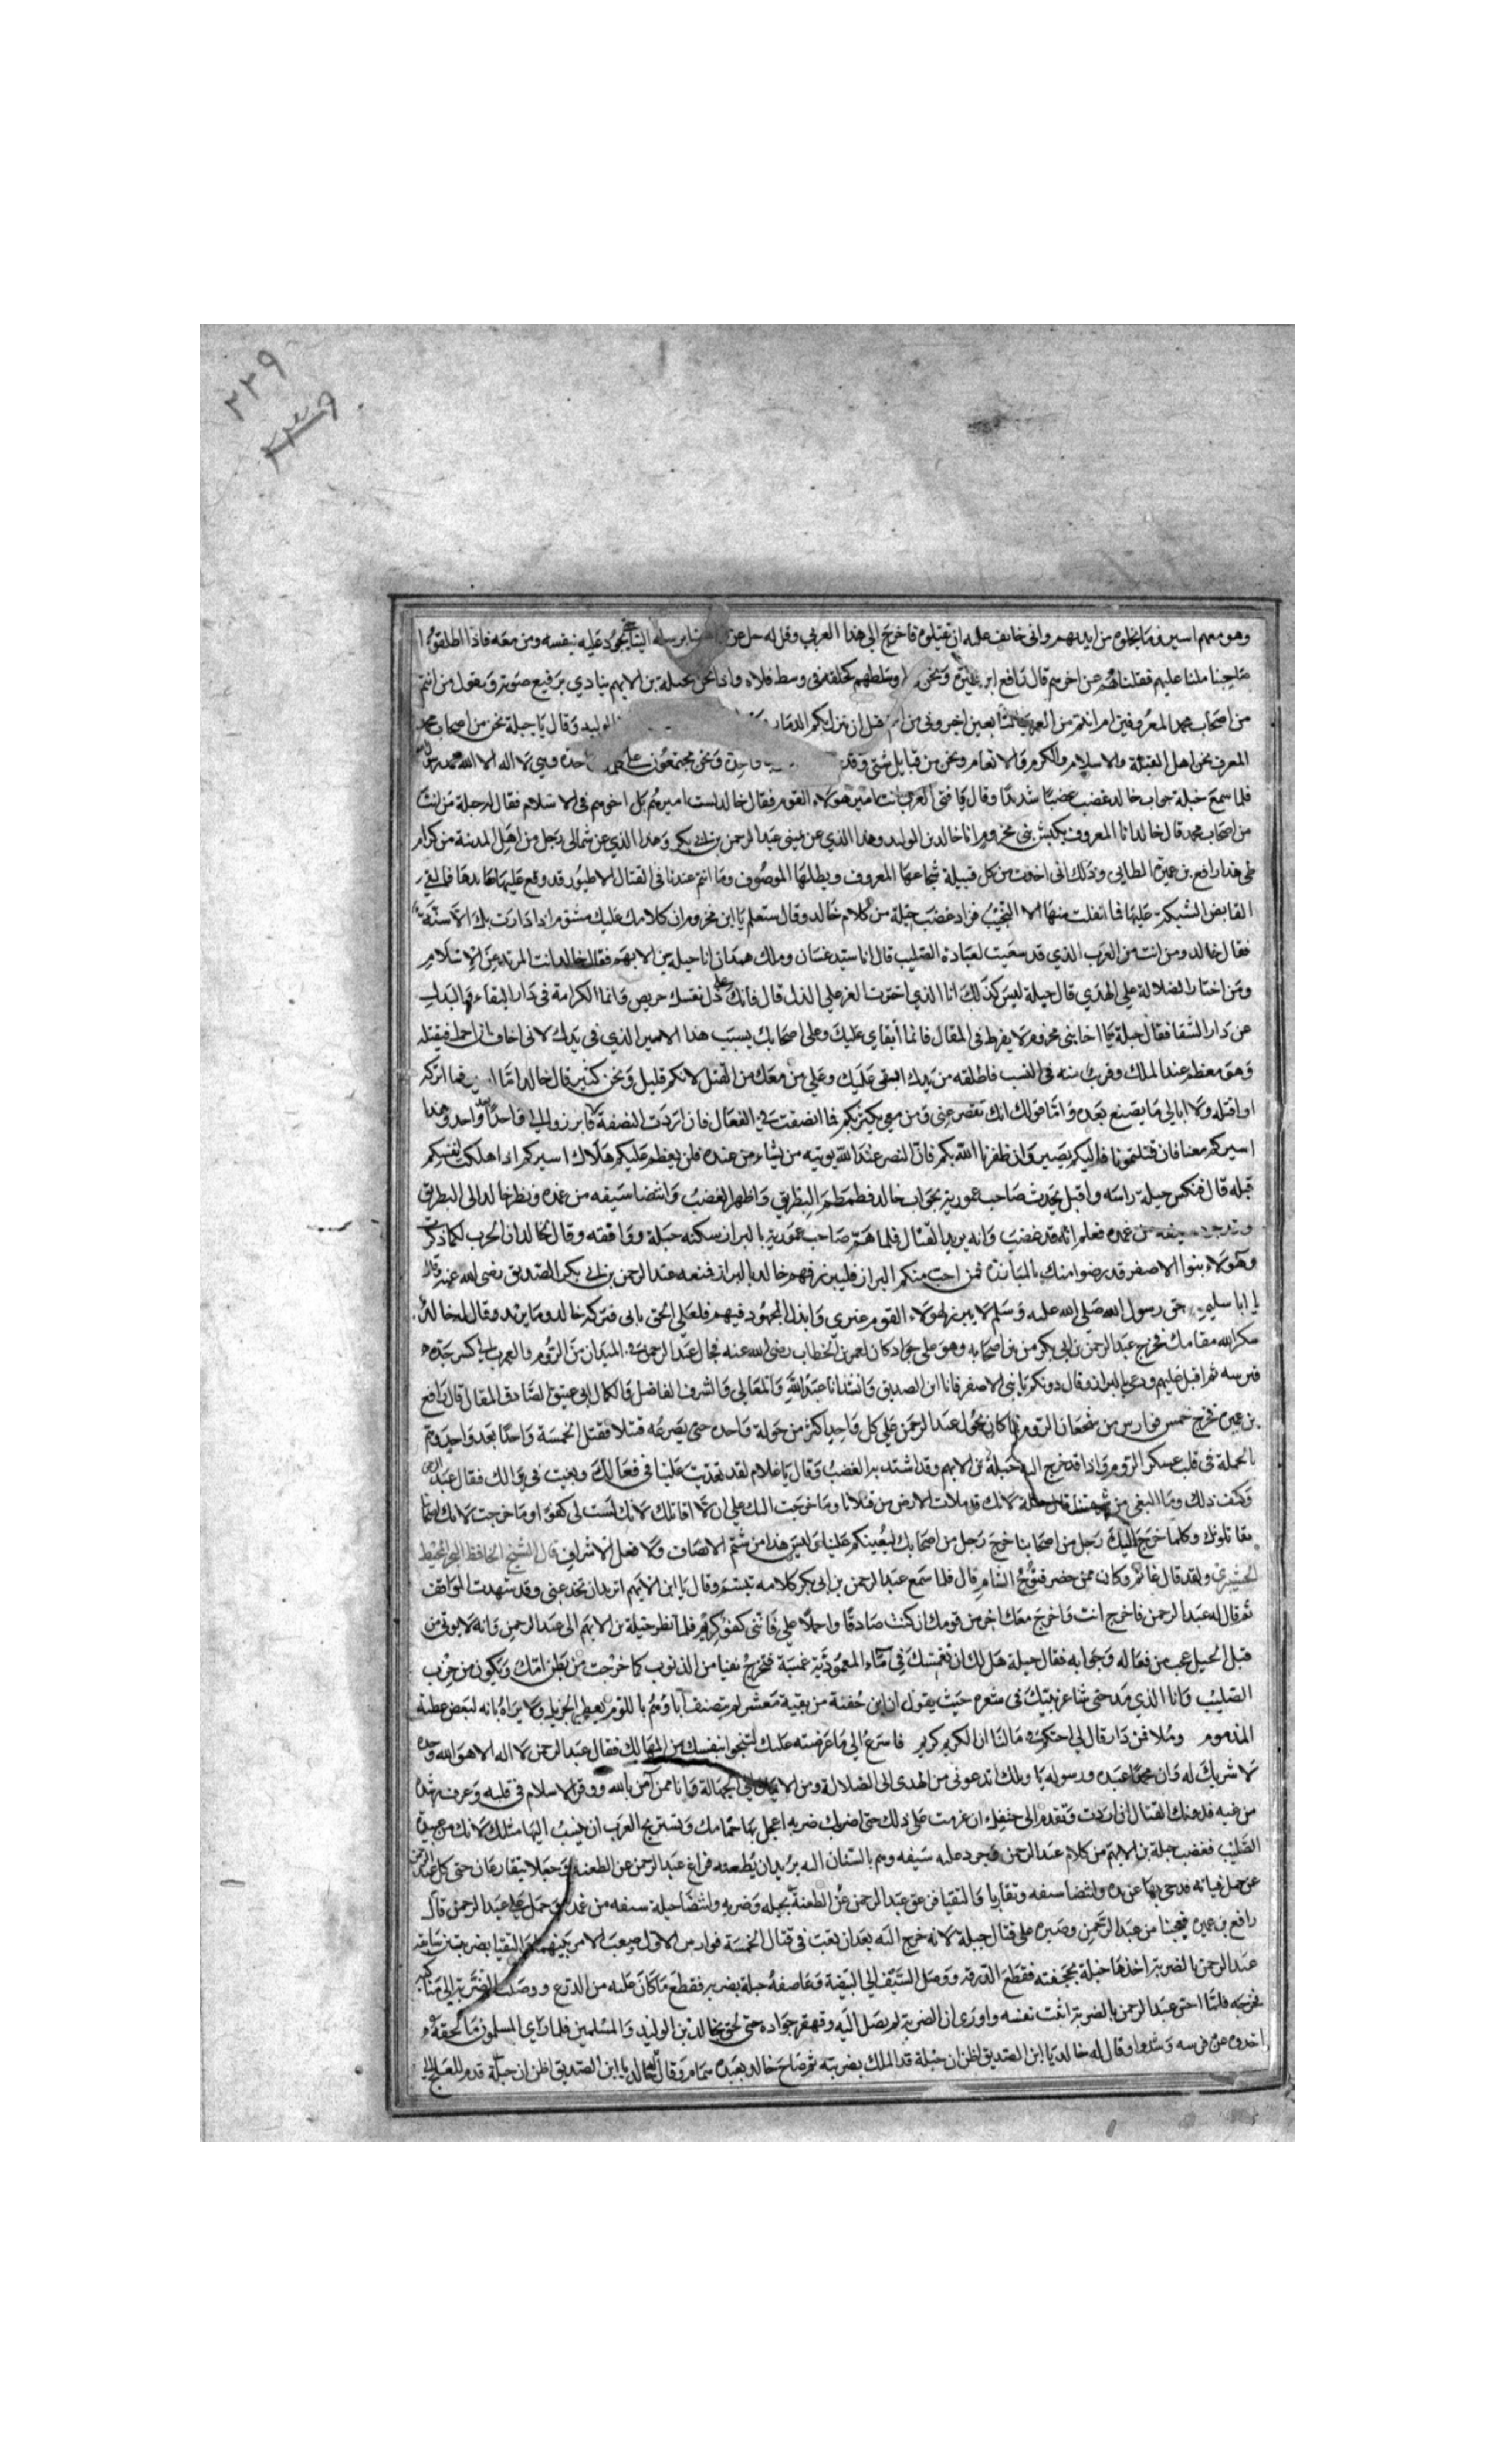 ٢٢٩
وهو معهم اسير فما يخلوه من ايديهم واني خائف عليه ان يقتلوه فاخرج الى هذا العربي وقل له حل عن يرسله الينا يجود عليه بنفسه ومن معه فاذا اطلقوا
صاحبنا ملنا عليهم فقتلناهم عن اخرهم قال رافع ابن عميرة ونحن اوسطهم كحلقة في وسط فلاه واذا نحن بجبلة بن الايهم ينادي برفيع صوته ويقول من انتم
من اصحاب محمد المعروفين ام انتم من العرب قبل ان ينزل بكم الدمار الوليد وقال يا جبلة نحن من اصحاب محمد
المعرف نحن اهل القبلة والاسلام والكرم والانعام ونحن من قبايل شتى وقد واحدة ونحن مجتمعون على واحدة وهي لا اله الا الله محمد رسول الله
فلما سمع جبلة جواب خالد غضب غضبا شديدا وقال يا فتى العرب انت امير هولاء القوم فقال خالد لست اميرهم بل اخوهم في الاسلام فقال له جبلة من انت
من اصحاب محمد قال خالد انا المعروف بكبش بني مخزوم انا خالد بن الوليد وهذا الذي عن يميني عبد الرحمن بن ابي بكر وهذا الذي عن شمالي رجل من اهل المدينة من كرام
طي هذا رافع بن عميرة الطايي وذلك اني اخذت من كل قبيلة شجاعها المعروف وبطلها الموصوف وما انتم عندنا في القتال الا طيور قد وقع عليها صايدها فالقى
القابض الشبكة عليها فما انفلت منها الا النجيب فزاد غضب جبلة من كلام خالد وقال ستعلم يا ابن مخزوم ان كلامك عليك مشوم اذا دارت بك الاسنة
فقال خالد ومن انت من العرب الذي قد سعيت لعبادة الصليب قال انا سيد غسان وملك همدان انا جبلة بن الايهم فقال خالد انت المرتد عن الاسلام
ومن اختار الضلالة على الهدي قال جبلة ليس كذلك انا الذي اخترت العز على الذل قال فانك على ذل نفسك حريص وانما الكرامة في دار البقاء
عن دار الشقا فقال جبلة يا اخا بني مخزوم لا يفرط في المقال فانما ابقاي عليك وعلى اصحابك بسبب هذا الاسير الذي في يدك لاني اخاف ان احمل فيقتله
وهو معظم عند الملك وقريب منه في النسب فاطلقه من يدك ابقي عليك وعلى من معك من القتل لانكم قليل ونحن كثير قال خالد اما اسيركم فما اتركه
او اقتله ولا ابالي ما يصنع بعده واما قولك انك تقصر عني ومن معي بكثرتكم فما انصفت في الفعال فان اردت النصفة فابرزوا الي واحدا بعد واحد وهذا
اسيركم معنا فان قتلتمونا فاليكم يصير وان ظفرنا الله بكم فان النصر عند الله يوتيه من يشاء من عنده فلن يعظم عليكم هلاك اسيركم اذا اهلكت انفسكم
قبله قال فنكس جبلة راسه واقبل يحدث صاحب عمورية بجواب خالد فطمطم البطريق واظهر الغضب وانتضا سيفه من غمده ونظر خالد الى البطريق
سيفه من غمده فعلم انه قد غضب وانه يريد القتال فلما هم صاحب عمورية بالبراز سكنه جبلة وواقفه وقال لخالد ان الحرب كما ذكرت
وهولاء بنوا الاصفر قد رضوا منك بالمبارزة فمن احب منكم البراز فليبرز فهم خالد بالبراز فمنعه عبد الرحمن بن ابي بكر الصديق رضي الله عنه وقال
يا ابا سليمن وحق رسول الله صلى الله عليه وسلم لا يبرز لهولاء القوم غيري وابذل المجهود فيهم فلعلي الحق بابي فتركه خالد وما يريد وقال له خالد
شكر الله مقامك فخرج عبد الرحمن بن ابي بكر من بين اصحابه وهو على جواد كان لعمر بن الخطاب رضي الله عنه فجال عبد الرحمن في الميدان من الروم والعرب
فرسه ثم اقبل عليهم ودعى بالبراز وقال دونكم يا بني الاصفر فانا ابن الصديق وانشد انا عبد الله والمعالي والشرف الفاضل والكمال ابي عتيق الصادق المقال قال رافع
بن عميرة فخرج خمس فوارس من شجعان الروم فما كان يحول عبد الرحمن على كل واحد اكثر من جولة واحده حتى يصرعه قتيلا فقتل الخمسة واحدا بعد واحد وهم
بالحملة في قلب عسكر الروم واذا قد خرج اليه جبلة بن الايهم وقد اشتد به الغضب وقال يا غلام لقد تعديت علينا في فعالك وبغيت في قتالك فقال عبد الرحمن
وكيف ذلك وما البغي من شيمتنا قال جبلة لانك قد ملات الارض من قتلانا وما خرجت اليك على ان لا اقاتلك لانك لست لي كفوا وما خرجت لانك انما
يقاتلونك وكلما خرج اليك رجل من اصحابنا خرج رجل من اصحابك ليعينكم علينا وليس هذا من شيم الانصاف ولا فعل الاشراف قال الشيخ الحافظ
ولقد قال غانم وكان ممن حضر فتوح الشام قال فلما سمع عبد الرحمن بن ابي بكر كلامه تبسم وقال يا ابن الايهم اتريد ان تخدعني وقد شهدت المواقف
ثم قال له عبد الرحمن فاخرج انت واخرج معك اخر من قومك ان كنت صادقا واحملا علي فانني كفو كريم فلما نظر جبلة بن الايهم الى عبد الرحمن وانه لا يوتى من
قبل الحيل عجب من فعاله وجوابه فقال جبلة هل لك ان نغمسك في ماء المعمودية غمسة فتخرج نقيا من الذنوب كما خرجت من بطن امك وتكون من حزب
الصليب وانا الذي مدحني شاعر نبيك في شعره حيث يقول ان ابن جفنة من بقية معشر لم يصنف اباوهم باللوم يعطي الجزيل ولا يراه بانه لبعض عطية
المذموم فاسرع الى ما عرضته عليك لتنجوا بنفسك من المهالك فقال عبد الرحمن لا اله الا هو الله وحده
لا شريك له وان محمدا عبده ورسوله يا ويلك اتدعوني من الهدى الى الضلالة ومن الايمان الى الجهالة وانا ممن آمن بالله ووقر الاسلام في قلبه وعرف رشده
من غيه فدونك القتال ان اردت وتقدم الى ان عزمت على ذلك حتى اضربك ضربه اعجل بها حمامك وتستريح العرب ان ينسب اليها مثلك لانك من عبيد
الصليب فغضب جبلة بن الايهم من كلام عبد الرحمن وجرد عليه سيفه وهم بالسنان اليه يريد ان يطعنه فراغ عبد الرحمن عن الطعنة وجعلا يتقارعان حتى كل عبد الرحمن
عن حمل قناته فرمى بها عن يده وانتضا سيفه وتقاربا والتقيا فزعق عبد الرحمن عن الطعنة وانتضا جبلة سيفه من غمده وحمل على عبد الرحمن قال
رافع بن عميرة فعجبنا من عبد الرحمن وصبره على قتال جبلة لانه خرج اليه بعد ان تعب في قتال الخمسة فوارس الاول وصعب الامر بينهما والتقيا بضربتين سابقه
عبد الرحمن بالضربة اخذها جبلة بحجفته فقطع الدرقة ووصل السيف الى البيضة وعاصفه جبلة بضربه فقطع ما كان عليه من الدرع ووصلت الضربة الى منكبه
فجرحه فلما احس عبد الرحمن بالضربة اثبت نفسه واورى ان الضربة لم يصل اليه وقهقر جواده حتى لحق بخالد بن الوليد والمسلمين فلما راي المسلمون ما لحقه
اخذوه عن فرسه وشدوا وقال له خالد يا ابن الصديق اظن ان جبلة قد المك بضربته ثم صاح خالد بعبده همام وقال يا ابن الصديق اظن ان جبلة